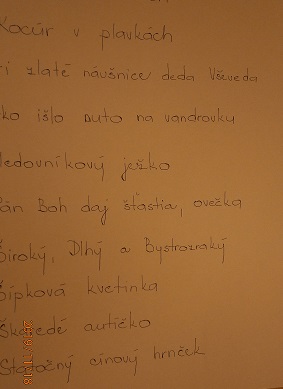 Kocúr v plavkách
ri zlaté náušnice deda Vševeda
ko išlo auto na vandrovku
ledovníkový ježko
Pán Boh daj šťastia, ovečka
Široký, Dlhý a Bystrozraký
Šípková kvetinka
Škaredé autíčko
Statočný cínový hrnček